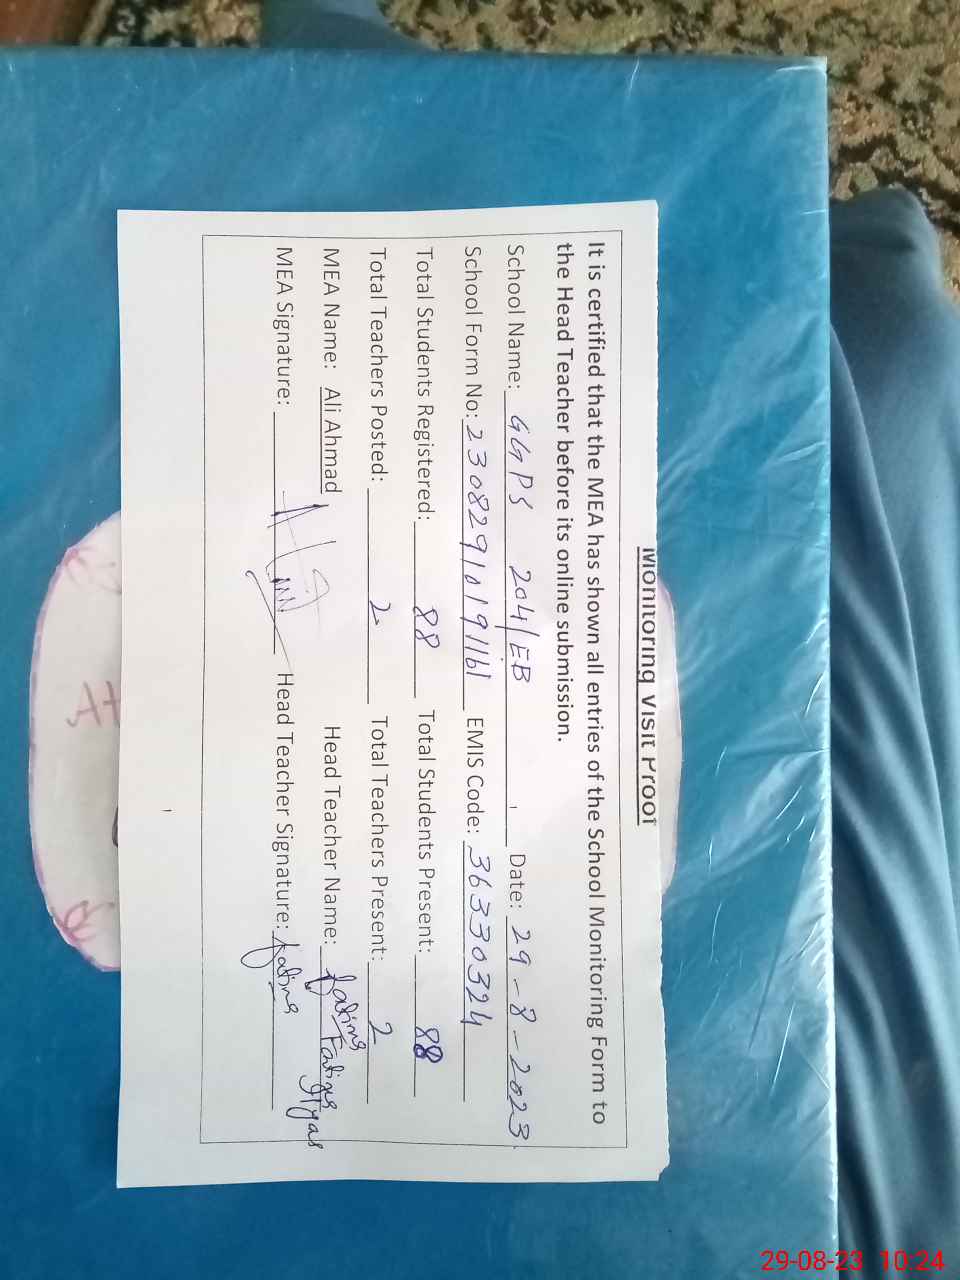 Monitoring Visit Proof
It is certified that the MEA has shown all entries of the School Monitoring Form to
the Head Teacher before its online submission.
School Name: GGPS 204/EB Date: 29-8-2023
School Form No: 23082910191161 EMIS Code: 36330324
Total Students Registered: 88 Total Students Present: 88
Total Teachers Posted: 2 Total Teachers Present: 2
MEA Name: Ali Ahmad Head Teacher Name: Fatima Ilyas
MEA Signature: Head Teacher Signature: Fatima
29-08-23 10:24